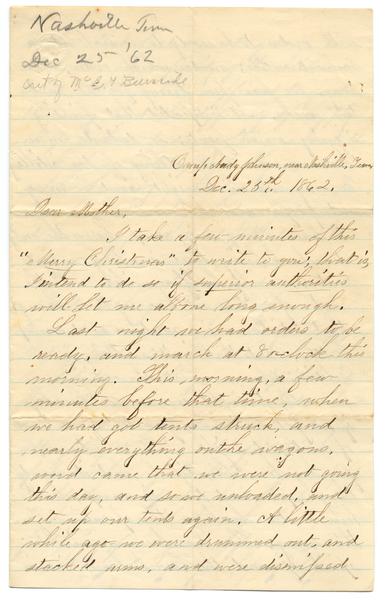 Nashville Tenn
Dec 25 '62
Camp Andy Johnson, near Nashville, Tenn,
Dec. 25th. 1862.
Dear Mother,
I take a few minutes of this
"Merry Christmas" to write to you; that is,
I intend to do so if superior authorities
will let me alone long enough.
Last night we had orders to be
ready, and march at 8 o-clock this
morning. This morning, a few
minutes before that time, when
we had got tents struck, and
nearly everything on the wagons,
word came that we were not going
this day, and so we unloaded, and
set up our tents again. A little
while ago we were drummed out, and
stacked arms, and were dismissed